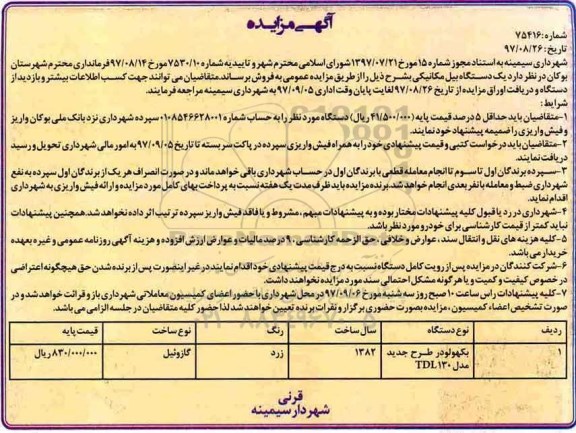 آگهی مزایده
شماره: ۷۵۴۱۶
تاریخ: ۹۷/۰۸/۲۶
شهرداری سیمینه به استناد مجوز شماره ۱۵ مورخ ۱۳۹۷/۰۷/۲۱ شورای اسلامی محترم شهر و تاییدیه شماره ۷۵۳۰/۱۰ مورخ ۹۷/۰۸/۱۴ فرمانداری محترم شهرستان
بوکان در نظر دارد یک دستگاه بیل مکانیکی بشرح ذیل را از طریق مزایده عمومی به فروش برساند. متقاضیان می توانند جهت کسب اطلاعات بیشتر و بازدید از
دستگاه و دریافت اوراق مزایده از تاریخ ۹۷/۰۸/۲۶ لغایت پایان وقت اداری ۹۷/۰۹/۰۵ به شهرداری سیمینه مراجعه فرمایند.
شرایط:
۱-متقاضیان باید حداقل ۵ درصد قیمت پایه (۴۱/۵۰۰/۰۰۰ ریال) دستگاه مورد نظر را به حساب شماره ۰۱۰۸۵۴۶۶۲۸۰۰۱ سپرده شهرداری نزد بانک ملی بوکان واریز
و فیش واریزی را ضمیمه پیشنهاد خود نمایند.
۲-متقاضیان باید درخواست کتبی و قیمت پیشنهادی خود را به همراه فیش واریزی سپرده در پاکت سربسته تا تاریخ ۹۷/۰۹/۰۵ به امور مالی شهرداری تحویل و رسید
دریافت نمایند.
۳-سپرده برندگان اول تا سوم تا انجام معامله قطعی با برندگان اول در حساب شهرداری باقی خواهد ماند و در صورت انصراف هر یک از برندگان اول سپرده به نفع
شهرداری ضبط و معامله با نفر بعدی انجام خواهد شد. برنده مزایده باید ظرف مدت یک هفته نسبت به پرداخت بهای کامل مورد مزایده و ارائه فیش واریزی به شهرداری
اقدام نماید.
۴-شهرداری در رد یا قبول کلیه پیشنهادات مختار بوده و به پیشنهادات مبهم، مشروط و یا فاقد فیش واریز سپرده ترتیب اثر داده نخواهد شد. همچنین پیشنهادات
نباید کمتر از قیمت کارشناسی برای خودرو مورد نظر باشد.
۵-کلیه هزینه های نقل و انتقال سند، عوارض و خلافی، حق الزحمه کارشناسی، ۹ درصد مالیات و عوارض ارزش افزوده و هزینه آگهی روزنامه عمومی و غیره بعهده
خریدار می باشد.
۶-شرکت کنندگان در مزایده پس از رویت کامل دستگاه نسبت به درج قیمت پیشنهادی خود اقدام نمایند در غیر اینصورت پس از برنده شدن حق هیچگونه اعتراضی
در خصوص کیفیت و کمیت و یا هر گونه مشکل احتمالی سند مورد مزایده نخواهند داشت.
۷-کلیه پیشنهادات راس ساعت ۱۰ صبح روز سه شنبه مورخ ۹۷/۰۹/۰۶ در محل شهرداری با حضور اعضای کمیسیون معاملاتی شهرداری باز و قرائت خواهد شد و در
صورت تشخیص اعضاء کمیسیون، مزایده بصورت حضوری برگزار و نفرات برنده تعیین خواهند شد لذا حضور کلیه متقاضیان در جلسه الزامی می باشد.
ردیف نوع دستگاه سال ساخت رنگ نوع ساخت قیمت پایه
۱ بکهولودر طرح جدید مدل TDL۱۳۰ ۱۳۸۲ زرد گازوئیل ۸۳۰/۰۰۰/۰۰۰ ریال
قرنی
شهردار سیمینه